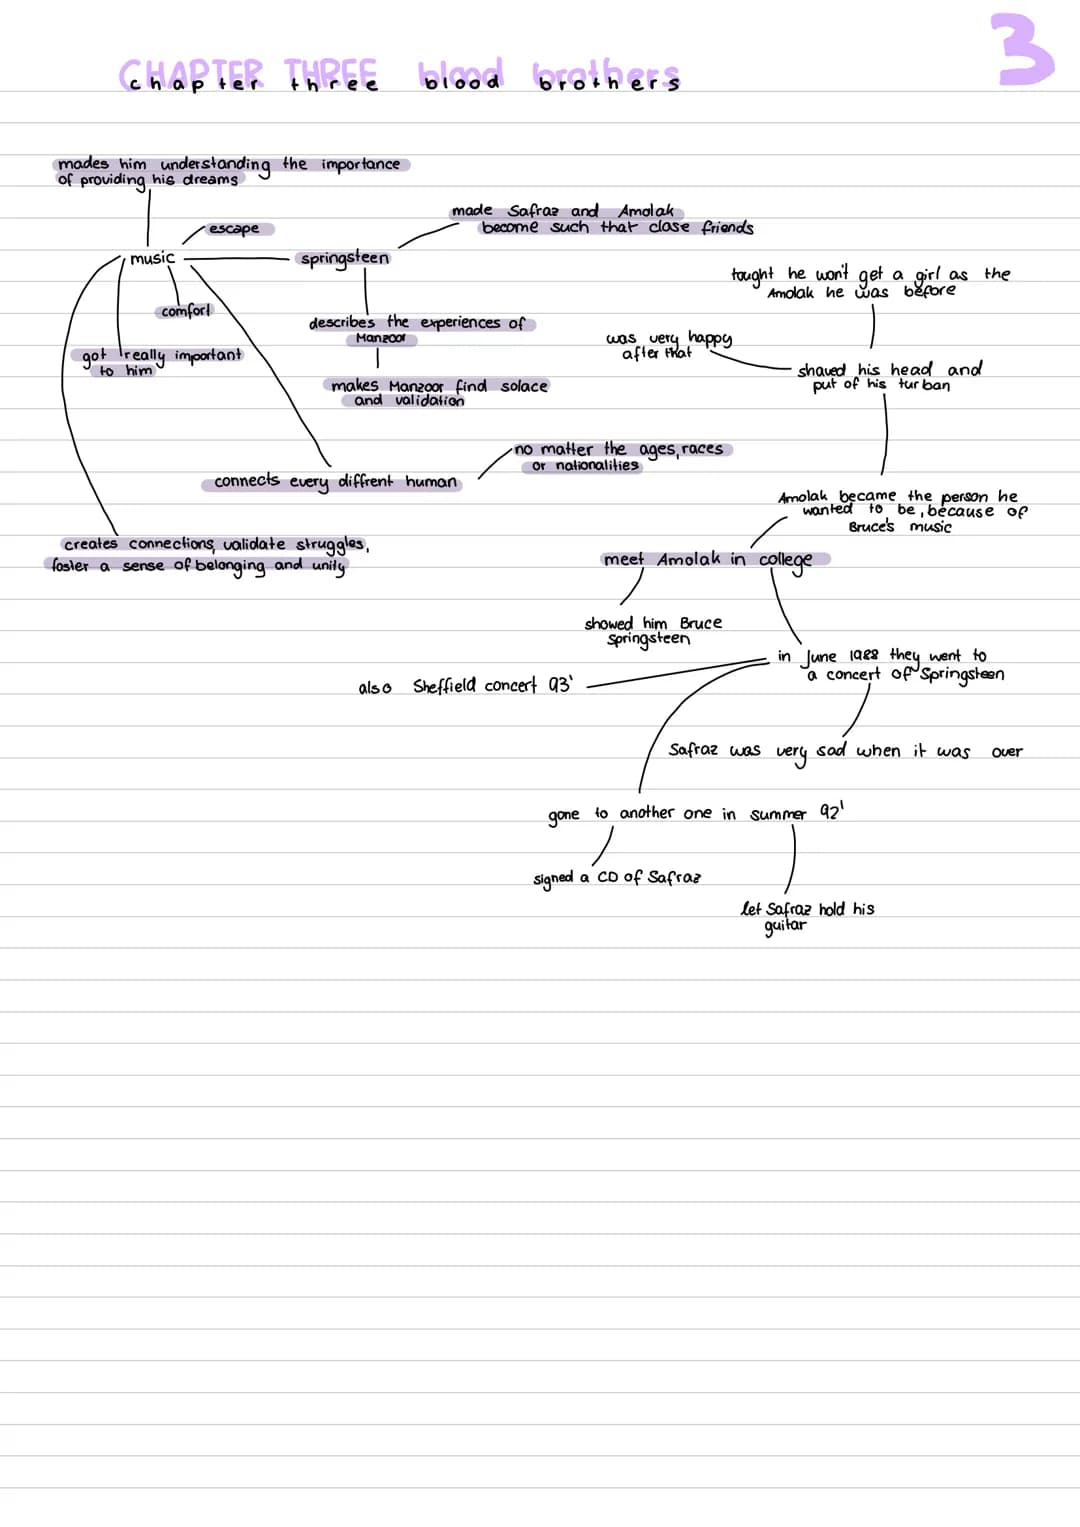 3
CHAPTER THREE blood brothers
chapter three blood brothers
mades him understanding the importance
of providing his dreams
made Safraz and Amolak
become such that close friends
escape
music
springsteen
tought he won't get a girl as the
Amolak he was before
comfort
describes the experiences of
Manzoor
was very happy
after that
got really important
to him
shaved his head and
put of his turban
makes Manzoor find solace
and validation
no matter the ages, races
or nationalities
connects every diffrent human
Amolak became the person he
wanted to be, because of
Bruce's music
creates connections, validate struggles,
foster a sense of belonging and unity
meet Amolak in college
showed him Bruce
Springsteen
in June 1988 they went to
a concert of Springsteen
also Sheffield concert 93'
Safraz was very sad when it was over
gone to another one in summer 92'
signed a CD of Safraz
let Safraz hold his
guitar